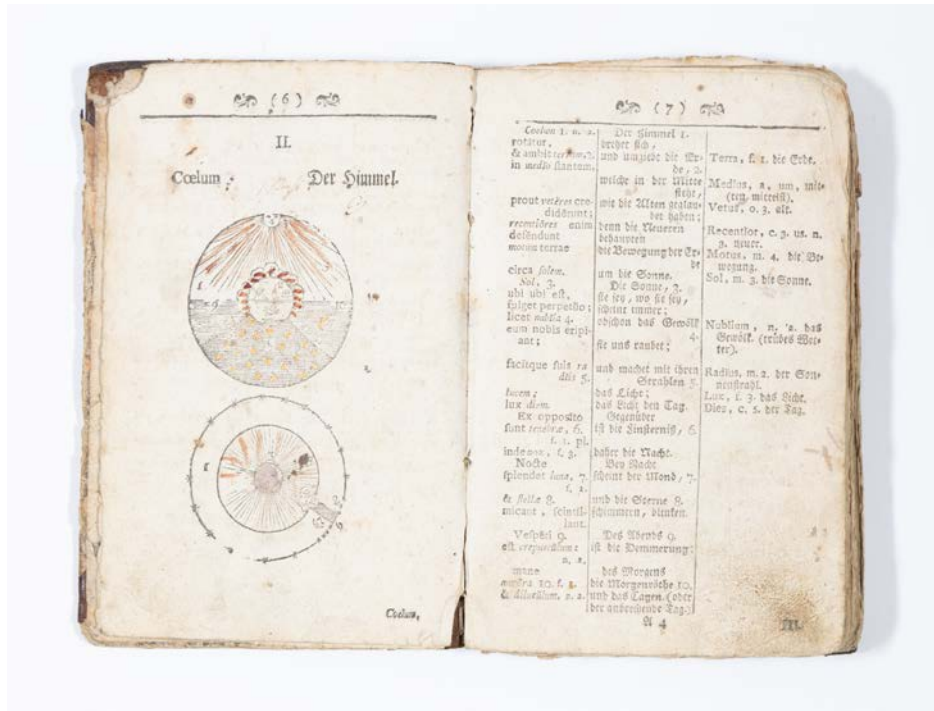 (6)
II.
Cœlum.
Der Himmel.
Cœlum,
(7)
Cœlum 1. n. 2.
rotatur,
& ambit terram, 2.
in medio stantem,
prout veteres cre-
didērunt;
recentiōres enim
defēndunt
motum terræ
circa solem.
Sol, 3.
ubi ubi est,
fulget perpetŭo;
licet nubĭla 4.
eum nobis eripi-
ant;
facitque suis ra
diis 5.
lucem;
lux diem.
Ex opposito
sunt tenebræ, 6.
f. 1. pl.
inde nox, f. 3.
Nocte
splendet luna, 7.
f. 1.
& stellæ 8.
micant, scintil-
lant.
Vespĕri 9.
est crepuscŭlum:
n. 2.
mane
aurōra 10. f. 1.
& dilucŭlum. n. 2.
Der Himmel 1.
drehet sich,
und umgiebt die Er-
de, 2.
welche in der Mitte
steht,
wie die Alten geglau-
bet haben;
denn die Neueren
behaupten
die Bewegung der Er-
de
um die Sonne.
Die Sonne, 3.
sie sey, wo sie sey,
scheint immer;
obschon das Gewölk
4.
sie uns raubet;
und machet mit ihren
Strahlen 5.
das Licht;
das Licht den Tag.
Gegenüber
ist die Finsterniß, 6.
daher die Nacht.
Bey Nacht
scheint der Mond, 7.
und die Sterne 8.
schimmern, blinken.
Des Abends 9.
ist die Demmerung:
des Morgens
die Morgenröthe 10.
und das Tagen. (oder
der anbrechende Tag.)
Terra, f. 1. die Erde.
Medius, a, um, mit-
(ten, mittelst).
Vetus, o. 3. alt.
Recentior, c. 3. us. n.
3. neuer.
Motus, m. 4. die Be-
wegung.
Sol, m. 3. die Sonne.
Nubilum, n. 2. das
Gewölk. (trübes Wet-
ter).
Radius, m. 2. der Son-
nenstrahl.
Lux, f. 3. das Licht.
Dies, c. 5. der Tag.
A 4
III.